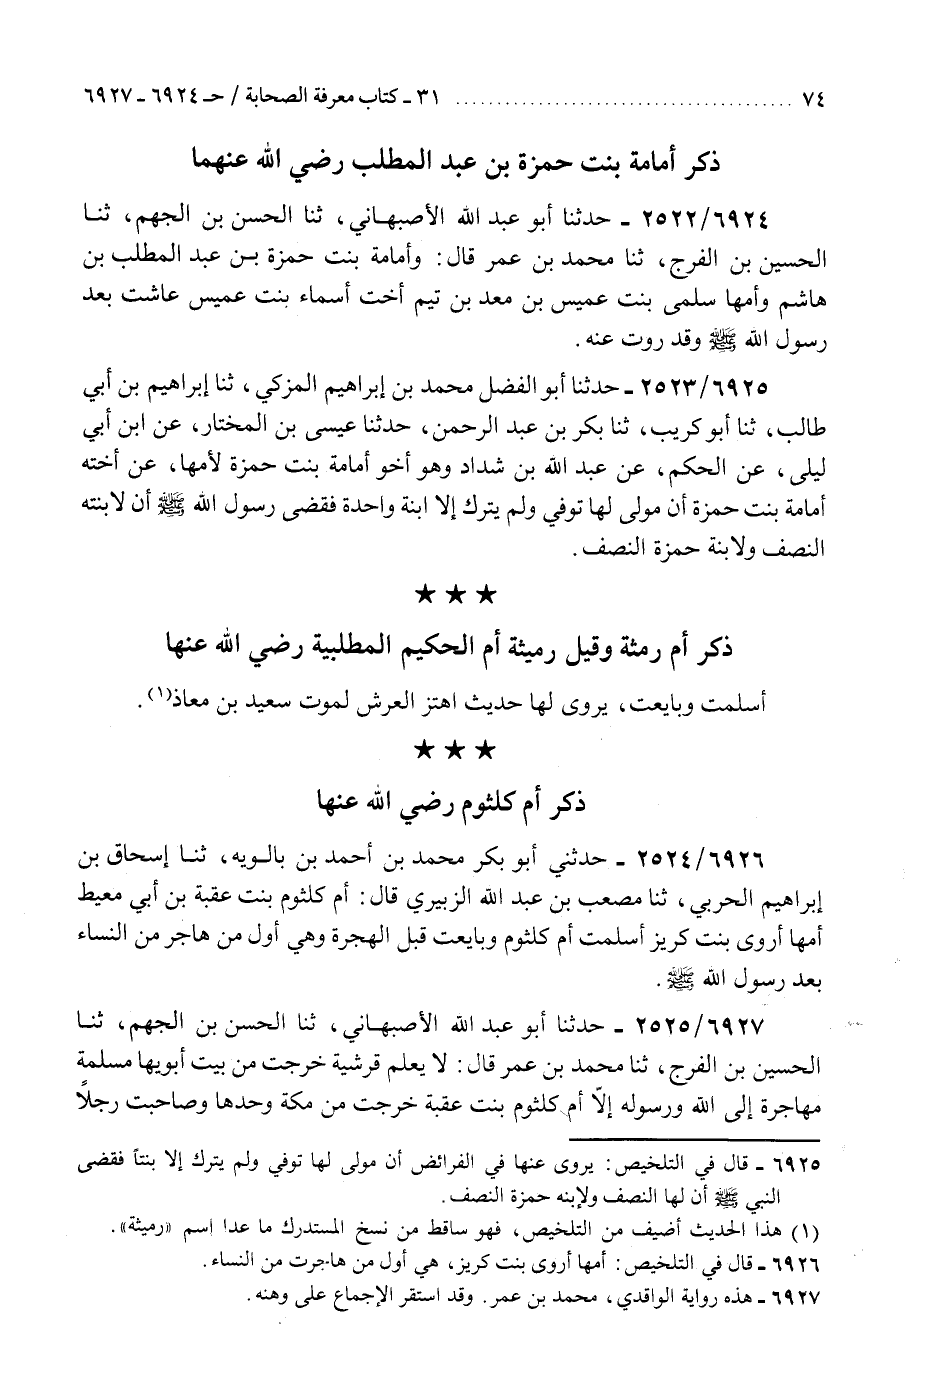 ٧٤ ........................................ ٣١ ـ كتاب معرفة الصحابة / حـ ٦٩٢٤ ـ ٦٩٢٧
ذكر أمامة بنت حمزة بن عبد المطلب رضي الله عنهما
٢٥٢٢/٦٩٢٤ ـ حدثنا أبو عبد الله الأصبهاني، ثنا الحسن بن الجهم، ثنا
الحسين بن الفرج، ثنا محمد بن عمر قال: وأمامة بنت حمزة بن عبد المطلب بن
هاشم وأمها سلمى بنت عميس بن معد بن تيم أخت أسماء بنت عميس عاشت بعد
رسول الله ﷺ وقد روت عنه.
٢٥٢٣/٦٩٢٥ ـ حدثنا أبو الفضل محمد بن إبراهيم المزكي، ثنا إبراهيم بن أبي
طالب، ثنا أبو كريب، ثنا بكر بن عبد الرحمن، حدثنا عيسى بن المختار، عن ابن أبي
ليلى، عن الحكم، عن عبد الله بن شداد وهو أخو أمامة بنت حمزة لأمها، عن أخته
أمامة بنت حمزة أن مولى لها توفي ولم يترك إلا ابنة واحدة فقضى رسول الله ﷺ أن لابنته
النصف ولابنة حمزة النصف.
★ ★ ★
ذكر أم رمثة وقيل رميثة أم الحكيم المطلبية رضي الله عنها
أسلمت وبايعت، يروى لها حديث اهتز العرش لموت سعيد بن معاذ(١).
★ ★ ★
ذكر أم كلثوم رضي الله عنها
٢٥٢٤/٦٩٢٦ ـ حدثني أبو بكر محمد بن أحمد بن بالويه، ثنا إسحاق بن
إبراهيم الحربي، ثنا مصعب بن عبد الله الزبيري قال: أم كلثوم بنت عقبة بن أبي معيط
أمها أروى بنت كريز أسلمت أم كلثوم وبايعت قبل الهجرة وهي أول من هاجر من النساء
بعد رسول الله ﷺ.
٢٥٢٥/٦٩٢٧ ـ حدثنا أبو عبد الله الأصبهاني، ثنا الحسن بن الجهم، ثنا
الحسين بن الفرج، ثنا محمد بن عمر قال: لا يعلم قرشية خرجت من بيت أبويها مسلمة
مهاجرة إلى الله ورسوله إلّا أم كلثوم بنت عقبة خرجت من مكة وحدها وصاحبت رجلاً
٦٩٢٥ ـ قال في التلخيص: يروى عنها في الفرائض أن مولى لها توفي ولم يترك إلا بنتاً فقضى
النبي ﷺ أن لها النصف ولإبنه حمزة النصف.
(١) هذا الحديث أضيف من التلخيص، فهو ساقط من نسخ المستدرك ما عدا اسم «رميثة».
٦٩٢٦ ـ قال في التلخيص: أمها أروى بنت كريز، هي أول من هاجرت من النساء.
٦٩٢٧ ـ هذه رواية الواقدي، محمد بن عمر. وقد استقر الإجماع على وهنه.